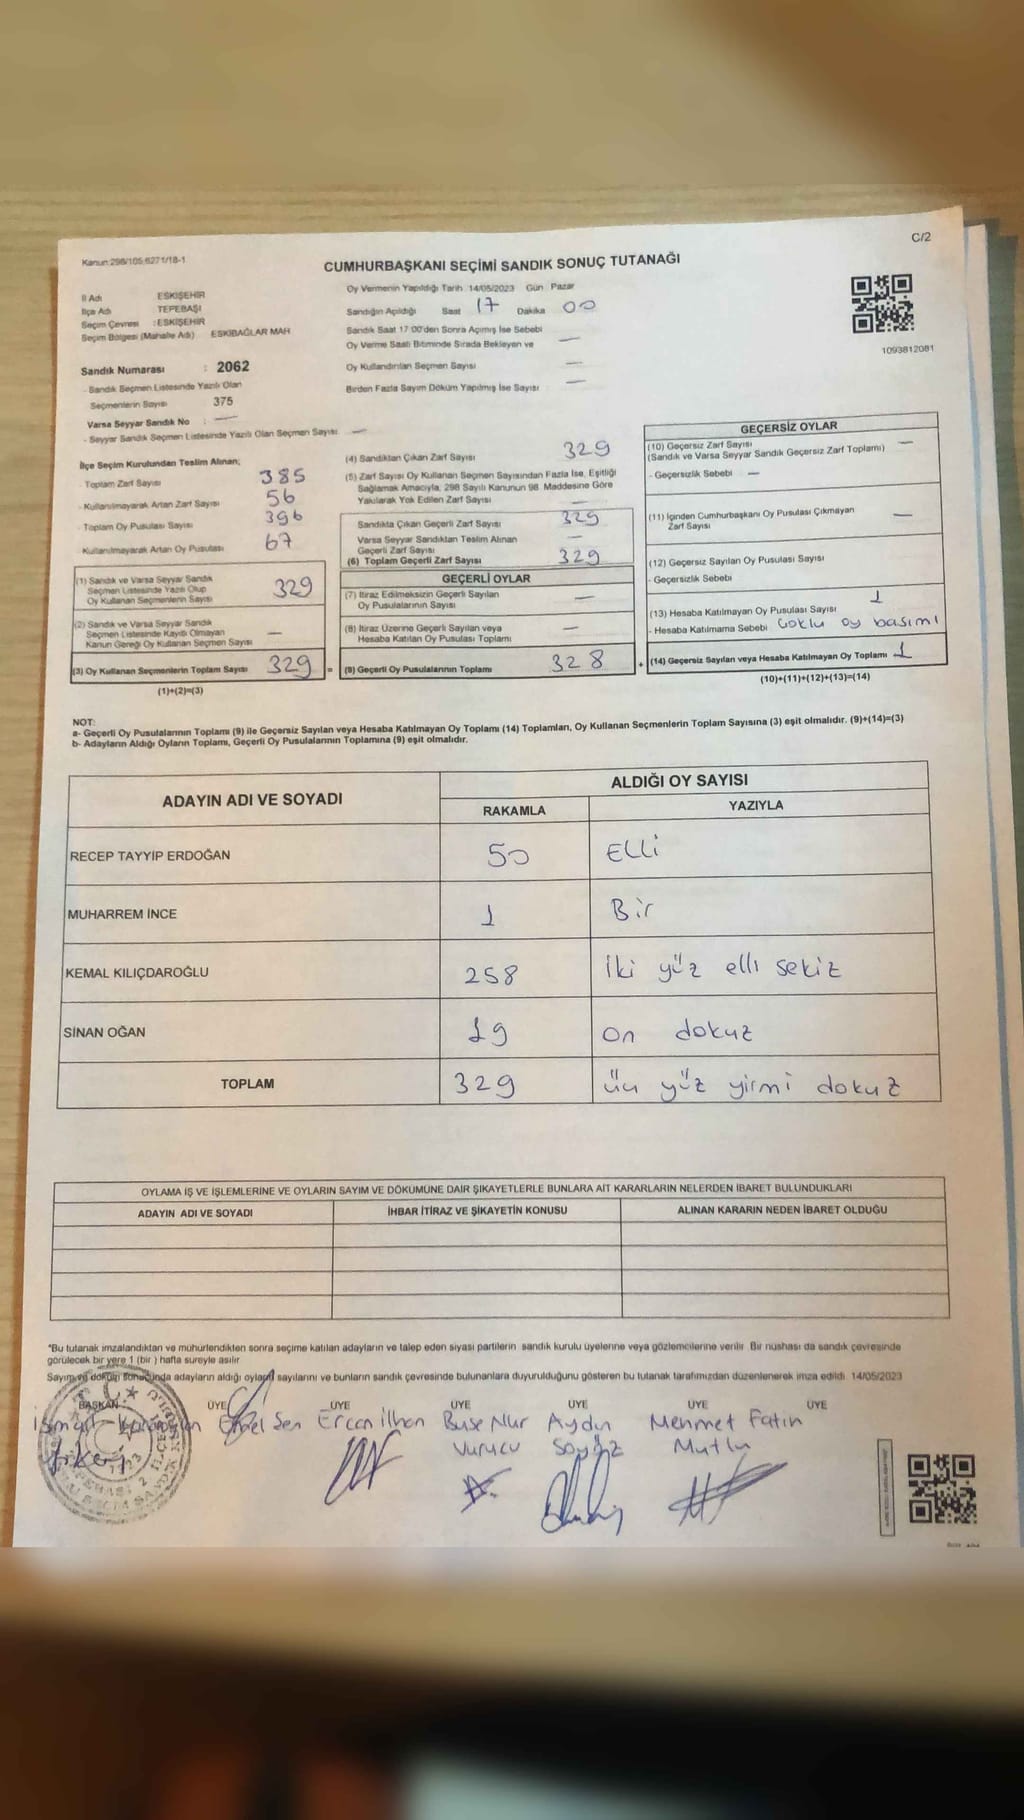 C/2
Kanun:298/105;6271/18-1
CUMHURBAŞKANI SEÇİMİ SANDIK SONUÇ TUTANAĞI
İl Adı ESKİŞEHİR
İlçe Adı TEPEBAŞI
Seçim Çevresi : ESKİŞEHİR
Seçim Bölgesi (Mahalle Adı) ESKİBAĞLAR MAH
Oy Vermenin Yapıldığı Tarih 14/05/2023 Gün Pazar
Sandığın Açıldığı Saat 17 Dakika 00
Sandık Saat 17 00'den Sonra Açmış İse Sebebi
Oy Verme Saati Bitiminde Sırada Bekleyen ve —
Oy Kullandırılan Seçmen Sayısı —
Birden Fazla Sayım Döküm Yapılmış İse Sayısı —
1093812081
Sandık Numarası : 2062
- Sandık Seçmen Listesinde Yazılı Olan
Seçmenlerin Sayısı 375
Varsa Seyyar Sandık No : —
- Seyyar Sandık Seçmen Listesinde Yazılı Olan Seçmen Sayısı —
İlçe Seçim Kurulundan Teslim Alınan;
Toplam Zarf Sayısı 385
- Kullanılmayarak Artan Zarf Sayısı 56
- Toplam Oy Pusulası Sayısı 396
Kullanılmayarak Artan Oy Pusulası 67
(1) Sandık ve Varsa Seyyar Sandık
Seçmen Listesinde Yazılı Olup
Oy Kullanan Seçmenlerin Sayısı 329
(2) Sandık ve Varsa Seyyar Sandık
Seçmen Listesinde Kayıtlı Olmayan
Kanun Gereği Oy Kullanan Seçmen Sayısı —
(3) Oy Kullanan Seçmenlerin Toplam Sayısı 329 =
(1)+(2)=(3)
(4) Sandıktan Çıkan Zarf Sayısı 329
(5) Zarf Sayısı Oy Kullanan Seçmen Sayısından Fazla İse, Eşitliği
Sağlamak Amacıyla, 298 Sayılı Kanunun 98. Maddesine Göre
Yakılarak Yok Edilen Zarf Sayısı —
Sandıkta Çıkan Geçerli Zarf Sayısı 329
Varsa Seyyar Sandıktan Teslim Alınan
Geçerli Zarf Sayısı —
(6) Toplam Geçerli Zarf Sayısı 329
GEÇERLİ OYLAR
(7) İtiraz Edilmeksizin Geçerli Sayılan
Oy Pusulalarının Sayısı —
(8) İtiraz Üzerine Geçerli Sayılan veya
Hesaba Katılan Oy Pusulası Toplamı —
(9) Geçerli Oy Pusulalarının Toplamı 328 +
GEÇERSİZ OYLAR
(10) Geçersiz Zarf Sayısı —
(Sandık ve Varsa Seyyar Sandık Geçersiz Zarf Toplamı)
- Geçersizlik Sebebi —
(11) İçinden Cumhurbaşkanı Oy Pusulası Çıkmayan
Zarf Sayısı —
(12) Geçersiz Sayılan Oy Pusulası Sayısı
- Geçersizlik Sebebi
(13) Hesaba Katılmayan Oy Pusulası Sayısı 1
- Hesaba Katılmama Sebebi Çoklu oy basımı
(14) Geçersiz Sayılan veya Hesaba Katılmayan Oy Toplamı 1
(10)+(11)+(12)+(13)=(14)
NOT:
a- Geçerli Oy Pusulalarının Toplamı (9) ile Geçersiz Sayılan veya Hesaba Katılmayan Oy Toplamı (14) Toplamları, Oy Kullanan Seçmenlerin Toplam Sayısına (3) eşit olmalıdır. (9)+(14)=(3)
b- Adayların Aldığı Oyların Toplamı, Geçerli Oy Pusulalarının Toplamına (9) eşit olmalıdır.
ADAYIN ADI VE SOYADI ALDIĞI OY SAYISI
RAKAMLA YAZIYLA
RECEP TAYYİP ERDOĞAN 50 Elli
MUHARREM İNCE 1 Bir
KEMAL KILIÇDAROĞLU 258 iki yüz elli sekiz
SİNAN OĞAN 19 on dokuz
TOPLAM 329 üç yüz yirmi dokuz
OYLAMA İŞ VE İŞLEMLERİNE VE OYLARIN SAYIM VE DÖKÜMÜNE DAİR ŞİKAYETLERLE BUNLARA AİT KARARLARIN NELERDEN İBARET BULUNDUKLARI
ADAYIN ADI VE SOYADI İHBAR İTİRAZ VE ŞİKAYETİN KONUSU ALINAN KARARIN NEDEN İBARET OLDUĞU
*Bu tutanak imzalandıktan ve mühürlendikten sonra seçime katılan adayların ve talep eden siyasi partilerin sandık kurulu üyelerine veya gözlemcilerine verilir. Bir nüshası da sandık çevresinde
görülecek bir yere 1 (bir ) hafta süreyle asılır
Sayım ve döküm sonucunda adayların aldığı oyların sayılarını ve bunların sandık çevresinde bulunanlara duyurulduğunu gösteren bu tutanak tarafımızdan düzenlenerek imza edildi. 14/05/2023
BAŞKAN ÜYE ÜYE ÜYE ÜYE ÜYE ÜYE
İsmail Emel Sen Ercan ilhan Buse Nur Aydın Mehmet Fatih
Vurucu Mutlu